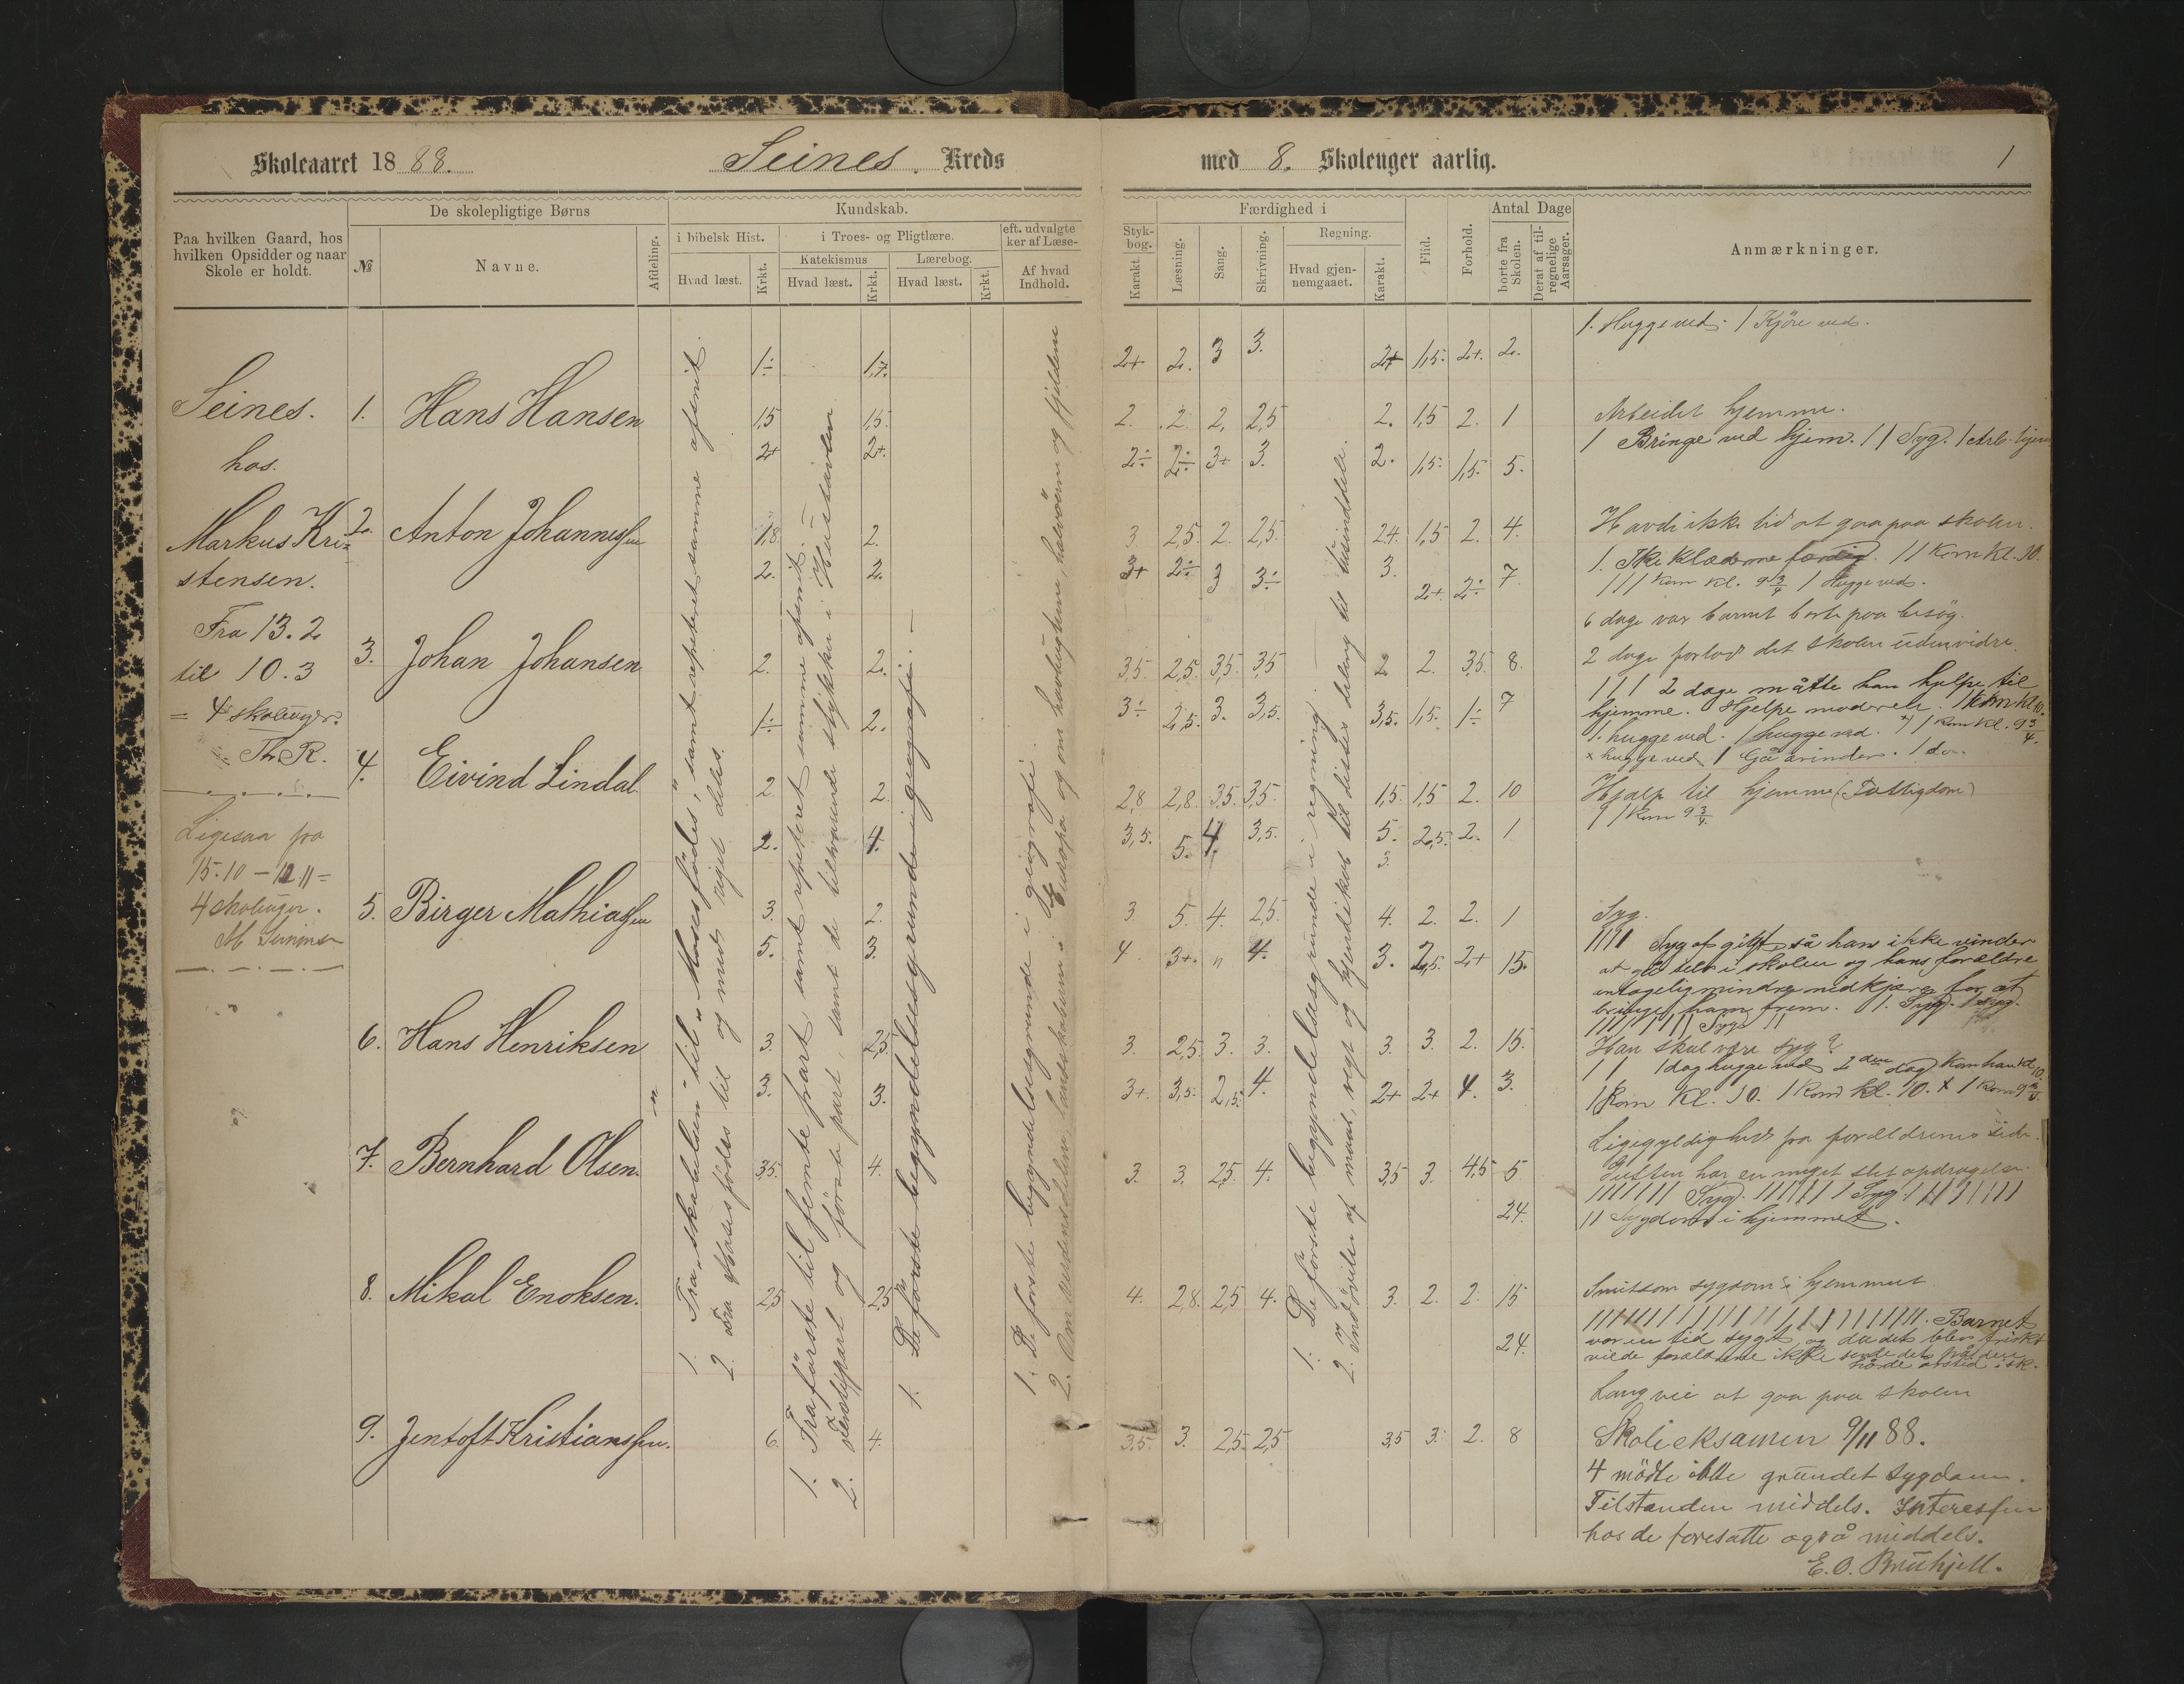 Skoleaaret 1888. Seines. Kreds
med 8. Skoleuger aarlig. 1
Paa hvilken Gaard, hos
hvilken Opsidder og naar
Skole er holdt.
De skolepligtige Børns
№
Navne.
Afdeling.
Kundskab.
i bibelsk Hist.
Hvad læst.
Krkt.
i Troes- og Pligtlære.
Katekismus
Hvad læst.
Krkt.
Lærebog.
Hvad læst.
Krkt.
eft. udvalgte
ker af Læse-
Af hvad
Indhold.
Styk-
bog.
Karakt.
Færdighed i
Læsning.
Sang.
Skrivning.
Regning.
Hvad gjen-
nemgaaet.
Karakt.
Flid.
Forhold.
Antal Dage
borte fra
Skolen.
Deraf af til-
regnelige
Aarsager.
Anmærkninger.
Seines.
hos
Markus Kri=
stensen.
Fra 13.2
til 10.3
= 4 skoleuger.
Th R.
Ligesaa fra
15.10 – 11 =
4 skoleuger.
1. Hans Hansen
2. Anton Johannessen
3. Johan Johansen
4. Eivind Lindal
5. Birger Mathiassen
6. Hans Henriksen
7. Bernhard Olsen
8. Mikal Enoksen.
9. Jentoft Kristianssen.
1. Fra „skabelsen" til „Moses fødes", samt repeteret samme ofenit.
2. Fra Moses fødes til og med riget deles.
1. Fra første til femte part, samt repeteret samme ofenit.
2. Femtepart og første part samt de tilsvarende stykker i Hustavlen
1. De første begyndelsesgrunde i geografi.
1. De første begyndelsesgrunde i geografi.
2. Om verdensdelene, landerskaberne i Europa og om hovedstæderne, halvøerne og fjeldene
1. De første begyndelsesgrunde i regning.
2. Indøvelse af maal, vegt og kjendskab til disses deling til tusinddele.
1÷ 1,7. 2+ 2. 3 3. 2+ 1,5. 2+. 2.
1,5 1,5. 2. 2. 2, 2,5 2. 1,5 2. 1
2+ 2+. 2÷ 2÷ 3+ 3. 2. 1,5. 1,5. 5.
1,8 2. 3 2,5 2. 2,5. 2,4. 1,5 2. 4.
2. 2. 3+ 2÷ 3 3÷ 3. 2+. 2÷ 7.
2. 2. 3,5. 2,5. 3,5. 3,5 2 2. 3,5. 8.
1÷ 2. 3÷ 2,5. 3. 3,5. 3,5. 1,5. 1÷ 7
2 2. 2,8 2,8. 3,5. 3,5. 1,5. 1,5 2. 10
2. 4. 3,5. 5. 4. 3,5. 5. 3. 2,5. 2. 1
3. 2. 3 5. 4. 2,5. 4. 2. 2. 1
5. 3. 4. 3+. „ 4. 3. 2,5. 2+ 15.
3. 2,5 3. 2,5 3. 3. 3. 3. 2. 15.
3. 3. 3+. 3,5. 2,5. 4. 2+ 2+ 4. 3.
3,5. 4. 3. 3. 2,5. 4. 3,5 3. 4,5 5
24.
2,5 2,5 4. 2,8. 2,5 4. 3. 2. 2. 15
24.
6. 4. 3,5. 3. 2,5. 2,5 3,5 3. 2. 8
1. Hugge ved. / Kjøre ved.
Arbeidet hjemme.
1 Bringe ved hjem. // Syg. / Arb. hjem
Havde ikke tid at gaa paa skolen.
1. Ikke klæderne færdig. // Kom kl. 10.
/// kom kl. 9 3/4 / Hugge ved.
6 dage var barnet borte paa besøg.
2 dage forlod det skolen uden videre.
/// 2 dage måtte han hjelpe til
hjemme. Hjelpe moderen. / Kom kl 10.
1. hugge ved. / hugge ved. / kom kl. 9 3/4.
x hugge ved / Gå ærinder. / do.
Hjælp til hjemme (Fattigdom)
/ Kom 9 3/4.
Syg.
//// Syg af gigt så hans ikke vinder
at gå selv i skolen og hans forældre
antagelig mindre nidkjære for at
bringe ham frem. 1. Syg. / Syg.
//////// Syge //
Han skal være syg?
// / dag hugge ved 2den dag kom han kl. 10.
/ Kom kl. 10. / Kom kl. 10. x / kom 9 3/4.
Ligegyldighed fra forældrenes side.
Gutten har en meget slet opdragelse.
/////// Syg. ////// / Syg. /////////
// Sygdom i hjemmet.
Smitsom sygdom i hjemmet
//////////////////////. Barnet
var en tid sygt, og da det blev friskt
vilde forældrene ikke sende det på den
hårde årstid i sk.
Lang vei at gaa paa skolen
Skoleeksamen 9/11 88.
4 mødte ikke grundet sygdom.
Tilstanden middels. Interessen
hos de foresatte også middels.
E. O. Bruhjell.